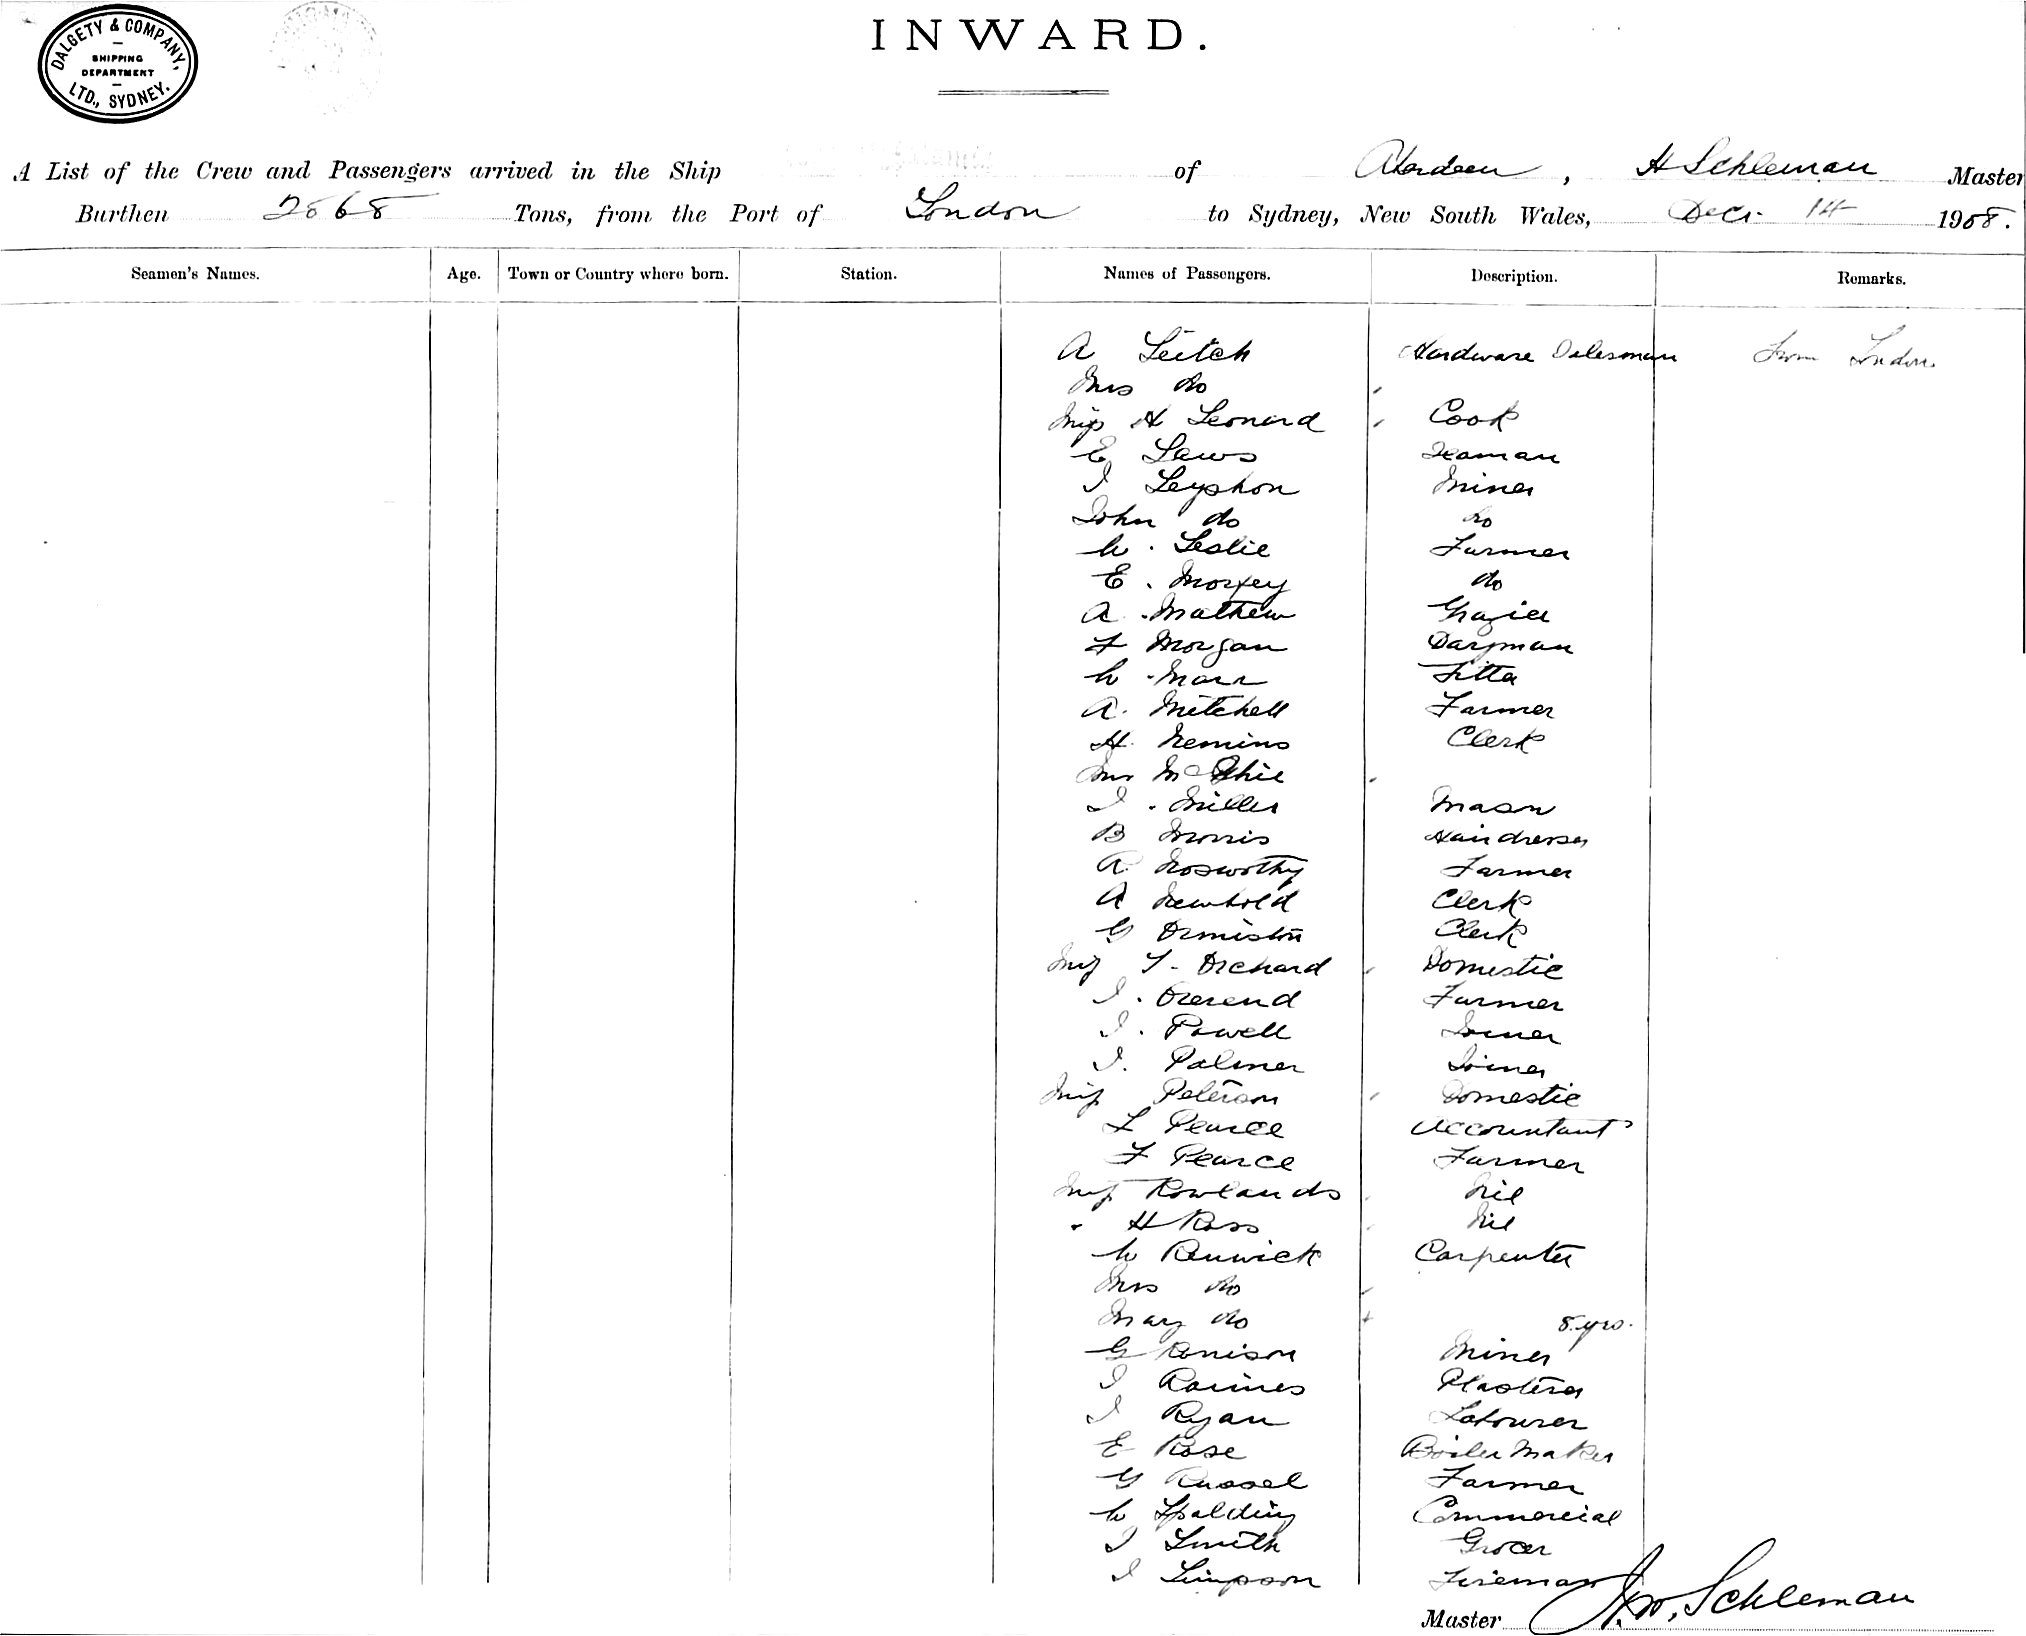 DALGETY & COMPANY,
SHIPPING
DEPARTMENT
LTD., SYDNEY.
INWARD.
A List of the Crew and Passengers arrived in the Ship of Aberdeen, H Schleman Master
Burthen 2868 Tons, from the Port of London to Sydney, New South Wales, Decr. 14 1908.
Seamen's Names. Age. Town or Country where born. Station. Names of Passengers. Description. Remarks.
A Leitch Hardware Salesman From London
Mrs do
Miss H Leonard Cook
E Laws Seaman
J Leyshon Miner
John do do
W. Leslie Farmer
E. Moxey do
A. Mathew Grazier
F Morgan Dairyman
W. Marr Fitter
A. Mitchell Farmer
H. Nemins Clerk
Mrs McPhie
J. Miller Mason
B Morris Hairdresser
A. Nosworthy Farmer
A Newbold Clerk
G Ormiston Clerk
Miss F. Orchard Domestic
J. Overend Farmer
J. Powell Joiner
J. Palmer Joiner
Miss Peterson Domestic
L Pearce Accountant
F Pearce Farmer
Miss Rowlands Nil
" H Ross Nil
W Renwick Carpenter
Mrs do
Mary do 8 yrs.
G Renison Miner
J Raines Plasterer
J Ryan Labourer
E Rose Boiler Maker
G Russel Farmer
W Spalding Commercial
J Smith Grocer
J Simpson Fireman
Master H.W. Schleman